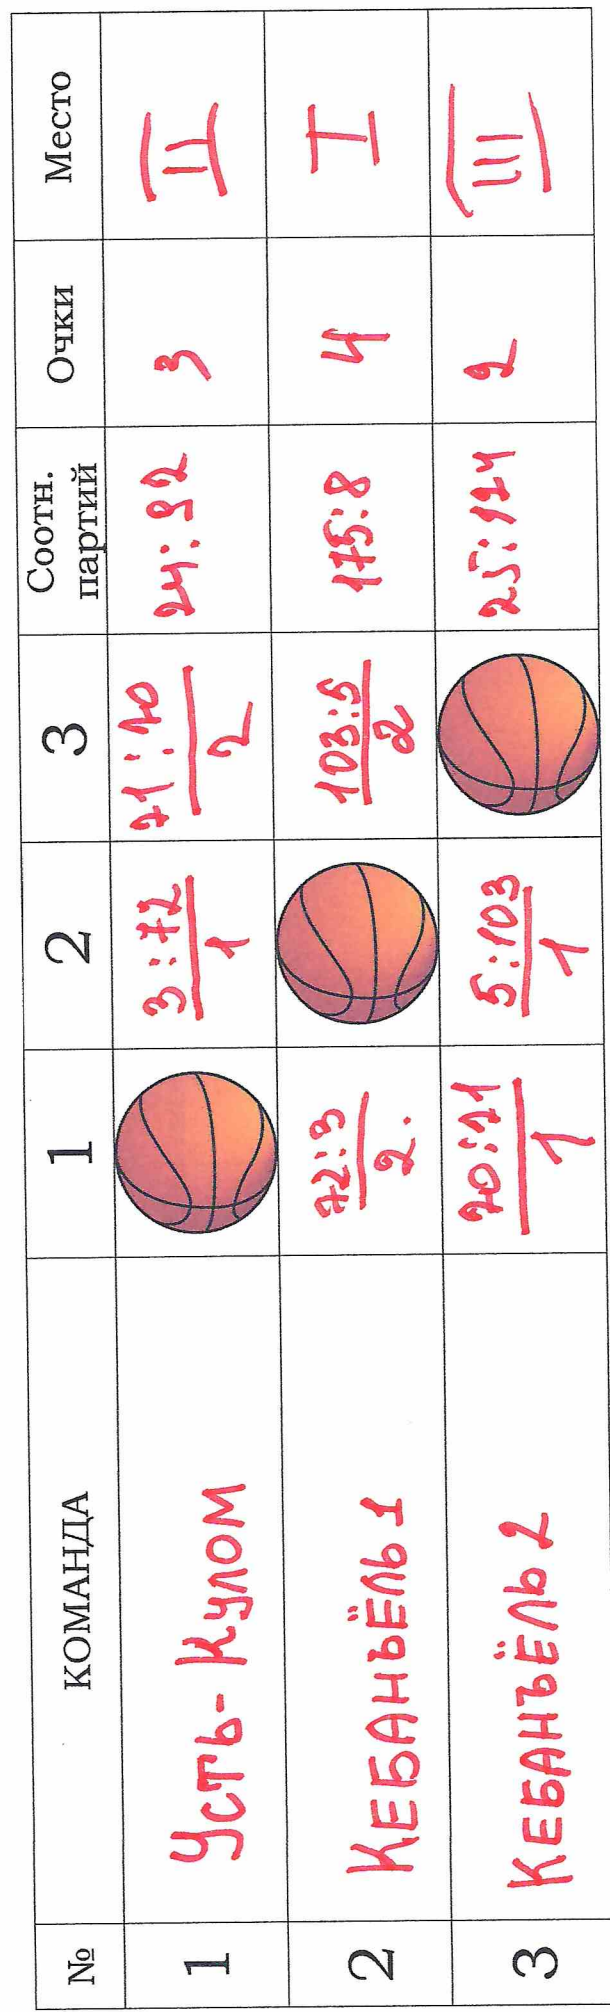 № КОМАНДА 1 2 3 Соотн. партий Очки Место
1 Усть-Кулом 3:72 / 1 21:20 / 2 24:92 3 II
2 КЕБАНЪЁЛЬ 1 72:3 / 2. 103:5 / 2 175:8 4 I
3 КЕБАНЪЁЛЬ 2 20:21 / 1 5:103 / 1 25:124 2 III